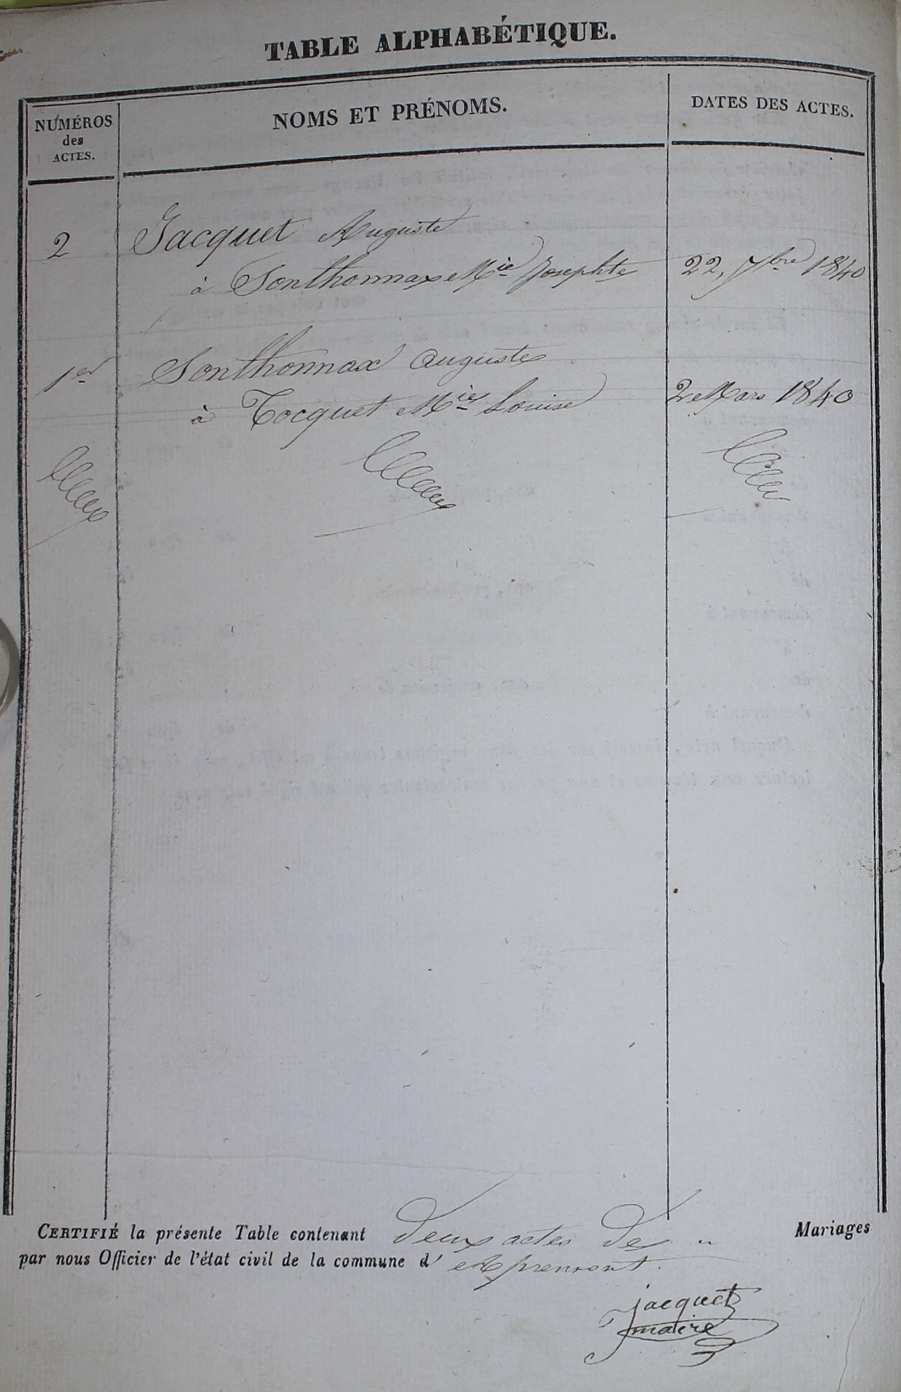 TABLE ALPHABÉTIQUE.
NUMÉROS des ACTES.
NOMS ET PRÉNOMS.
DATES DES ACTES.
2 Jacquet Auguste
à Sonthonnax Mie Josephte 22, 7bre 1840
1er Sonthonnax Auguste
à Tocquet Mie Louise 2 Mars 1840
CERTIFIÉ la présente Table contenant deux actes de Mariages
par nous Officier de l'état civil de la commune d' Apremont.
jacquet
maire